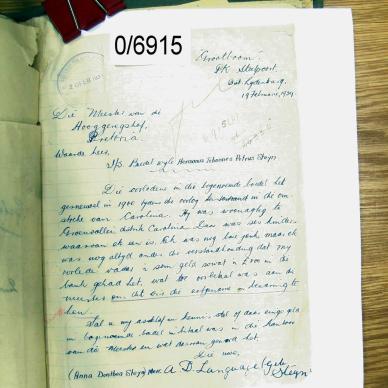 0/6915
"Grootboom"
PK Steelpoort,
Dist. Lydenburg.
19 Februarie, 1939.
Die Meester van die
Hooggeregshof,
Pretoria
Waarde Heer,
I/S Boedel wyle Hermanus Johannes Petrus Steyn
Die oorledene in die bogenoemde boedel het
gesneuwel in 1900 tydens die oorlog in die om-
streke van Carolina. Hy was woonagtig te
distrik Carolina. Daar was ses kinders
waarvan ek een is. Ek was nog baie jonk maar ek
was nog altyd onder die verstandhouding dat my
oorlede vader 'n som geld sowat £700 in die
bank gehad het, wat tot voordeel was aan die
meester om dit vir die erfgename in bewaring te
hou.
Sal u my asseblief in kennis stel of daar enige geld
in bogenoemde boedel inbetaal was in die kantoor
van die Meester en wat daarvan geword het.
Die uwe,
(Anna Dorothea Steyn) Mev. A. D. Language (gebore Steyn)